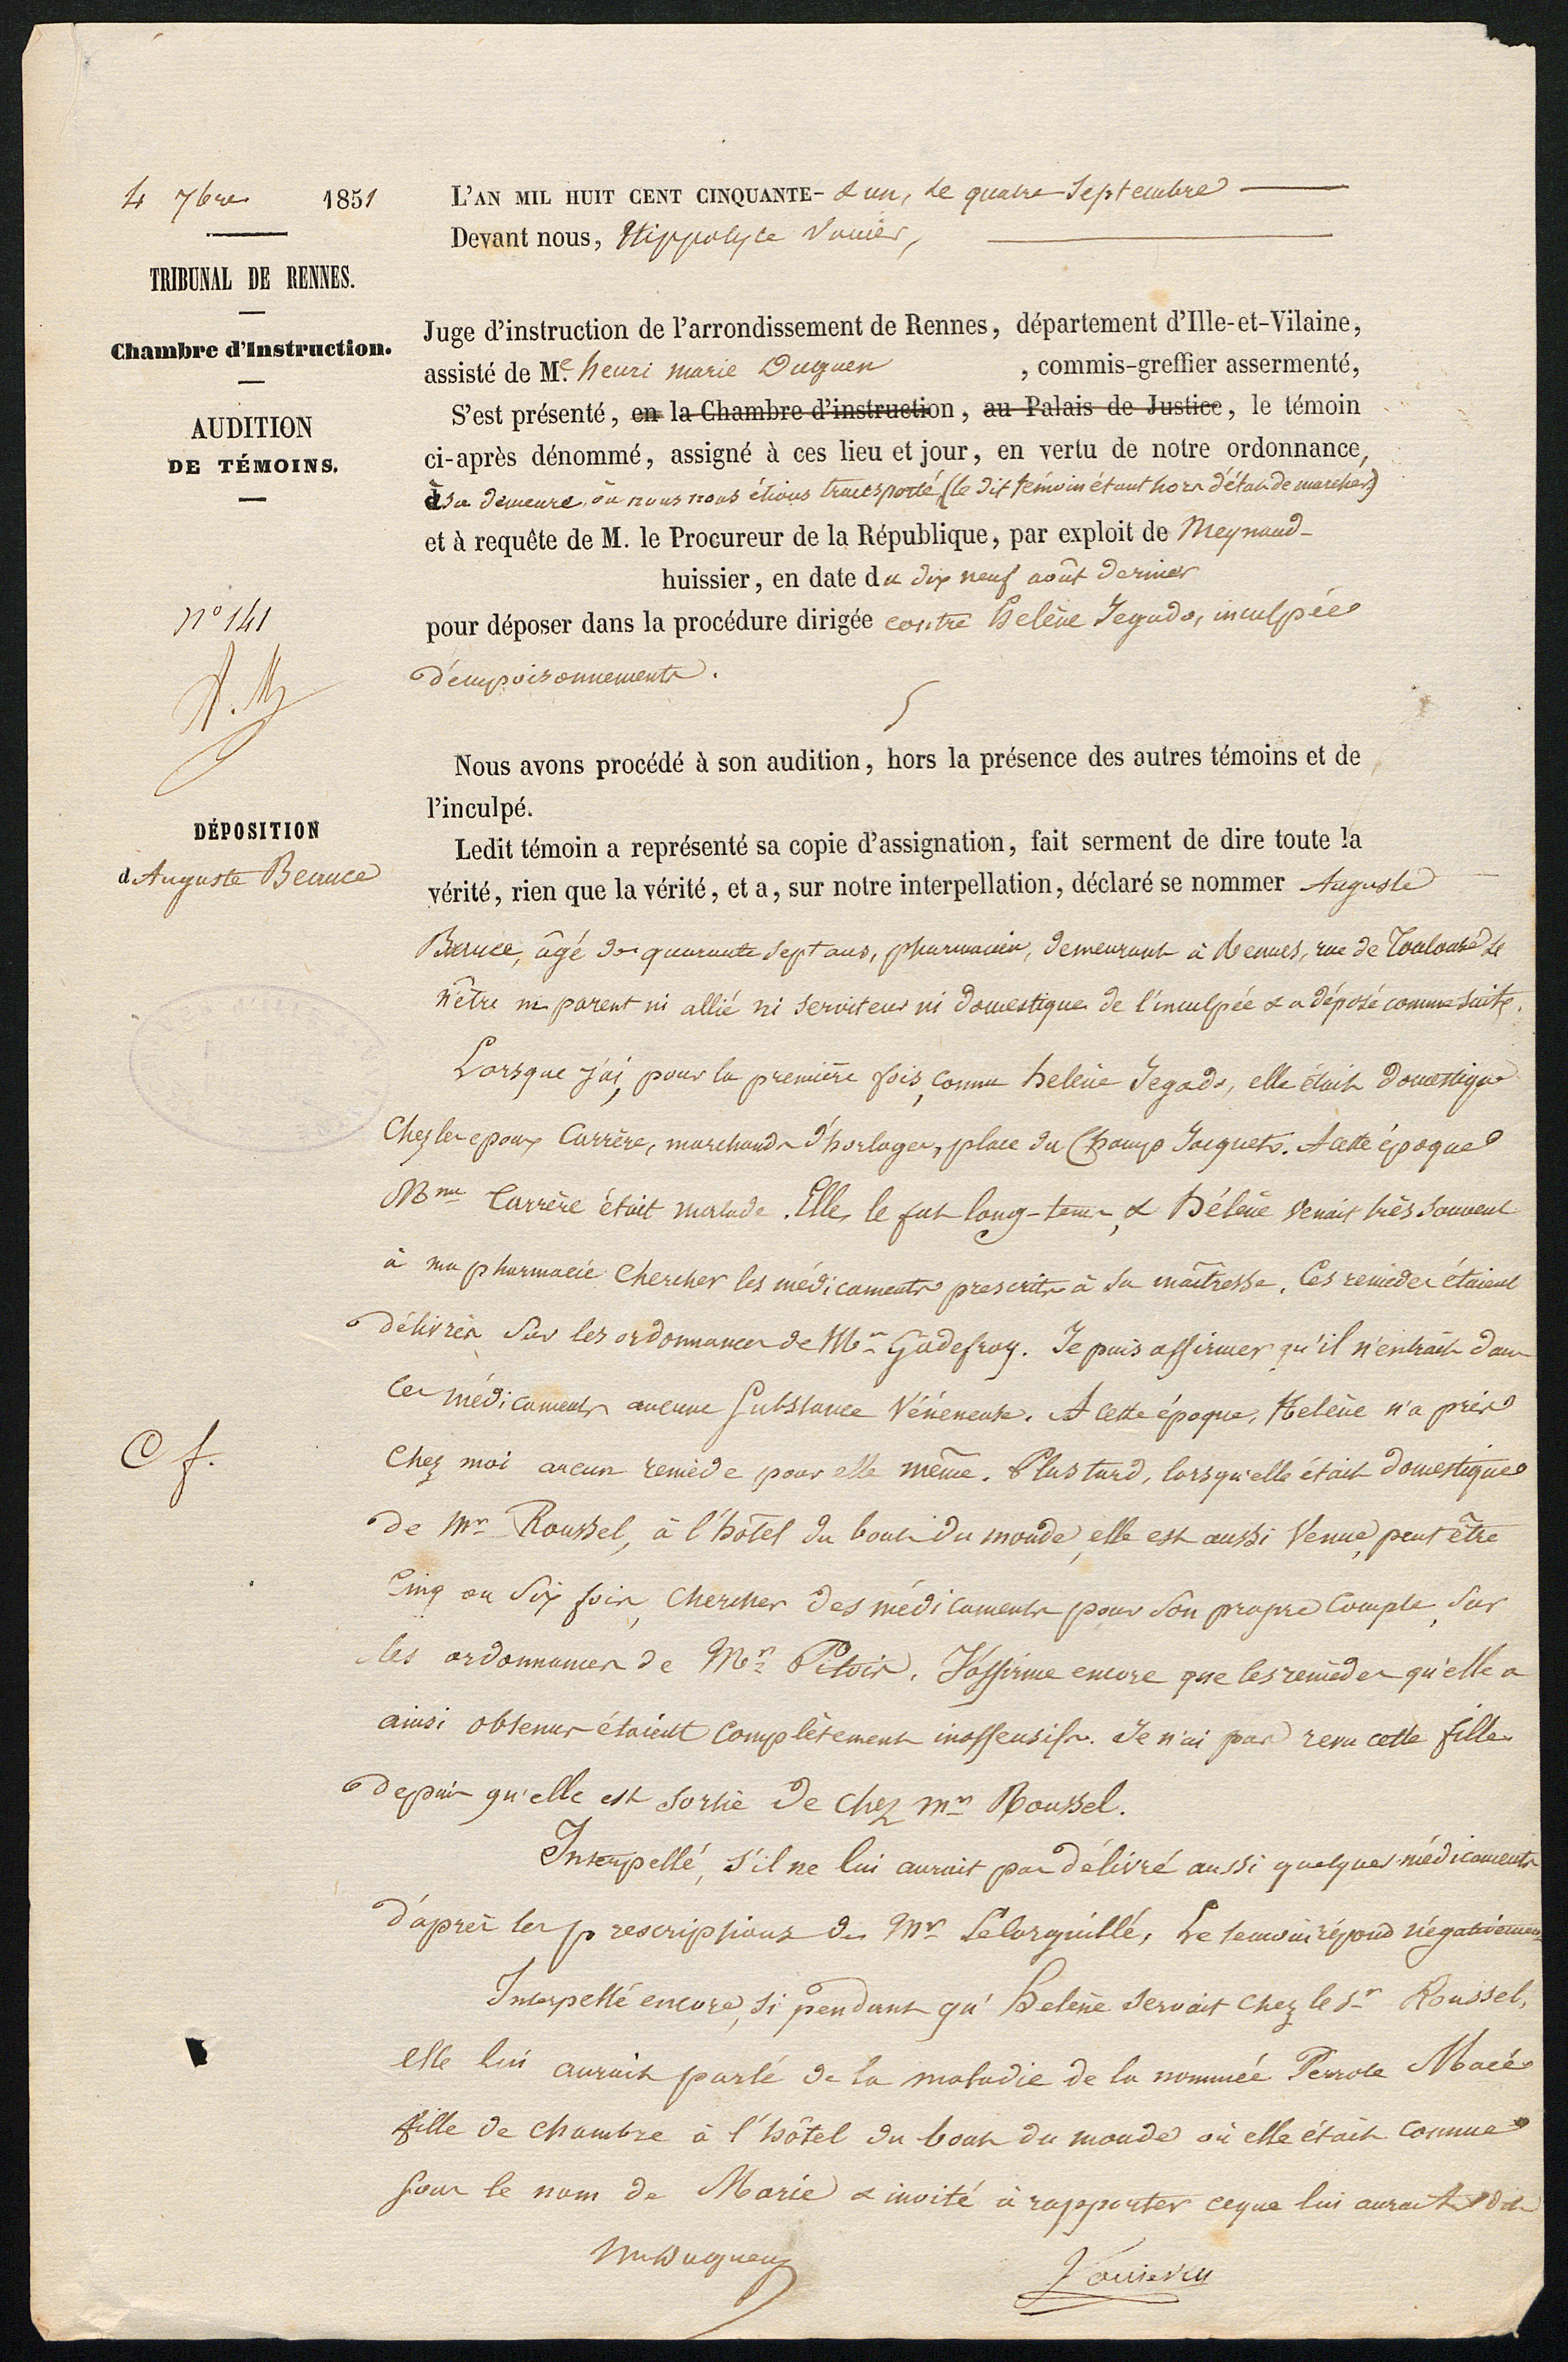 4 7bre 1851
TRIBUNAL DE RENNES.
Chambre d'Instruction.
AUDITION
DE TÉMOINS.
N° 141
DÉPOSITION
d'Auguste Beauce
C f.
L'AN MIL HUIT CENT CINQUANTE- & un, le quatre Septembre
Devant nous, Hippolyte Vannier,
Juge d'instruction de l'arrondissement de Rennes, département d'Ille-et-Vilaine,
assisté de Me. henri marie Duguen , commis-greffier assermenté,
S'est présenté, en la Chambre d'instruction, au Palais de Justice, le témoin
ci-après dénommé, assigné à ces lieu et jour, en vertu de notre ordonnance,
à sa demeure où nous nous étions transporté (le dit témoin étant hors d'état de marcher)
et à requête de M. le Procureur de la République, par exploit de Meynaud
huissier, en date du dix neuf août dernier
pour déposer dans la procédure dirigée contre helène Jegado, inculpée
d'empoisonnements.
Nous avons procédé à son audition, hors la présence des autres témoins et de
l'inculpé.
Ledit témoin a représenté sa copie d'assignation, fait serment de dire toute la
vérité, rien que la vérité, et a, sur notre interpellation, déclaré se nommer Auguste
Beauce, âgé de quarante sept ans, pharmacien, demeurant à Rennes, rue de Toulouse &
n'être ni parent ni allié ni serviteur ni domestique de l'inculpée & a déposé comme suit.
Lorsque j'ai, pour la première fois, connu helène Jegado, elle était domestique
chez les epoux Carrère, marchands d'horloges, place du Champ Jacquet. A cette époque
Mme Carrère était malade. Elle le fut long-tems, & hélène venait très souvent
à ma pharmacie chercher les médicaments prescrits à sa maîtresse. Ces remèdes étaient
délivrés sur les ordonnances de Mr Godefroy. Je puis affirmer qu'il n'entrait dans
ces médicaments aucune substance vénéneuse. A cette époque, Helène n'a pris
chez moi aucun remède pour elle même. Plus tard, lorsqu'elle était domestique
de Mr Roussel, à l'hôtel du bout du monde, elle est aussi venue, peut être
cinq ou six fois, chercher des médicaments pour son propre compte, sur
les ordonnances de Mr Pitois. J'affirme encore que les remèdes qu'elle a
ainsi obtenus étaient complètement inoffensifs. Je n'ai pas revu cette fille
depuis qu'elle est sortie de chez Mr Roussel.
Interpellé, s'il ne lui aurait pas délivré aussi quelques médicaments
d'après les prescriptions de Mr Revault, Le temoin répond négativement
Interpellé encore, si pendant qu'helène servait chez le Sr Roussel,
elle lui aurait parlé de la maladie de la nommée Perrote Macé
fille de chambre à l'hôtel du bout du monde où elle était connue
sous le nom de Marie & invité à rapporter ce que lui aurait dit
hm Duguen
Vannier